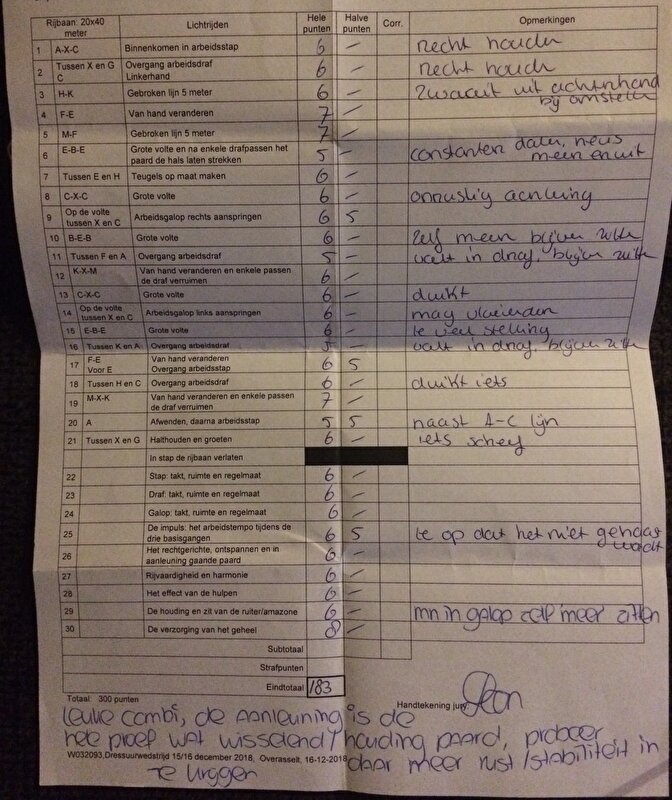 Rijbaan: 20x40 meter Lichtrijden Hele punten Halve punten Corr. Opmerkingen
1 A-X-C Binnenkomen in arbeidsstap 6 – recht houden
2 Tussen X en G C Overgang arbeidsdraf Linkerhand 6 – recht houden
3 H-K Gebroken lijn 5 meter 6 – zwaait uit achterhand bij omstellen
4 F-E Van hand veranderen 7 –
5 M-F Gebroken lijn 5 meter 7 –
6 E-B-E Grote volte en na enkele drafpassen het paard de hals laten strekken 5 – constanter dalen, neus meer eruit
7 Tussen E en H Teugels op maat maken 6 –
8 C-X-C Grote volte 6 – onrustig aanleuning
9 Op de volte tussen X en C Arbeidsgalop rechts aanspringen 6 5
10 B-E-B Grote volte 6 – zelf meer blijven zitten
11 Tussen F en A Overgang arbeidsdraf 5 – valt in draf, blijven zitten
12 K-X-M Van hand veranderen en enkele passen de draf verruimen 6 –
13 C-X-C Grote volte 6 – duikt
14 Op de volte tussen X en C Arbeidsgalop links aanspringen 6 – mag vloeiender
15 E-B-E Grote volte 6 – te veel stelling
16 Tussen K en A Overgang arbeidsdraf 5 – valt in draf, blijven zitten
17 F-E Voor E Van hand veranderen Overgang arbeidsstap 6 5
18 Tussen H en C Overgang arbeidsdraf 6 – duikt iets
19 M-X-K Van hand veranderen en enkele passen de draf verruimen 7 –
20 A Afwenden, daarna arbeidsstap 5 5 naast A-C lijn
21 Tussen X en G Halthouden en groeten 6 – iets scheef
In stap de rijbaan verlaten
22 Stap: takt, ruimte en regelmaat 6 –
23 Draf: takt, ruimte en regelmaat 6 –
24 Galop: takt, ruimte en regelmaat 6 –
25 De impuls: het arbeidstempo tijdens de drie basisgangen 6 5 te op dat het niet gehaast wordt
26 Het rechtgerichte, ontspannen en in aanleuning gaande paard 6 –
27 Rijvaardigheid en harmonie 6 –
28 Het effect van de hulpen 6 –
29 De houding en zit van de ruiter/amazone 6 – mn in galop zelf meer zitten
30 De verzorging van het geheel 8 –
Subtotaal
Strafpunten
Eindtotaal 183
Totaal: 300 punten
Handtekening jury
Leuke combi, de aanleuning is de
hele proef wat wisselend/houding paard, probeer
W032093,Dressuurwedstrijd 15/16 december 2018, Overasselt, 16-12-2018
daar meer rust/stabiliteit in
te krijgen